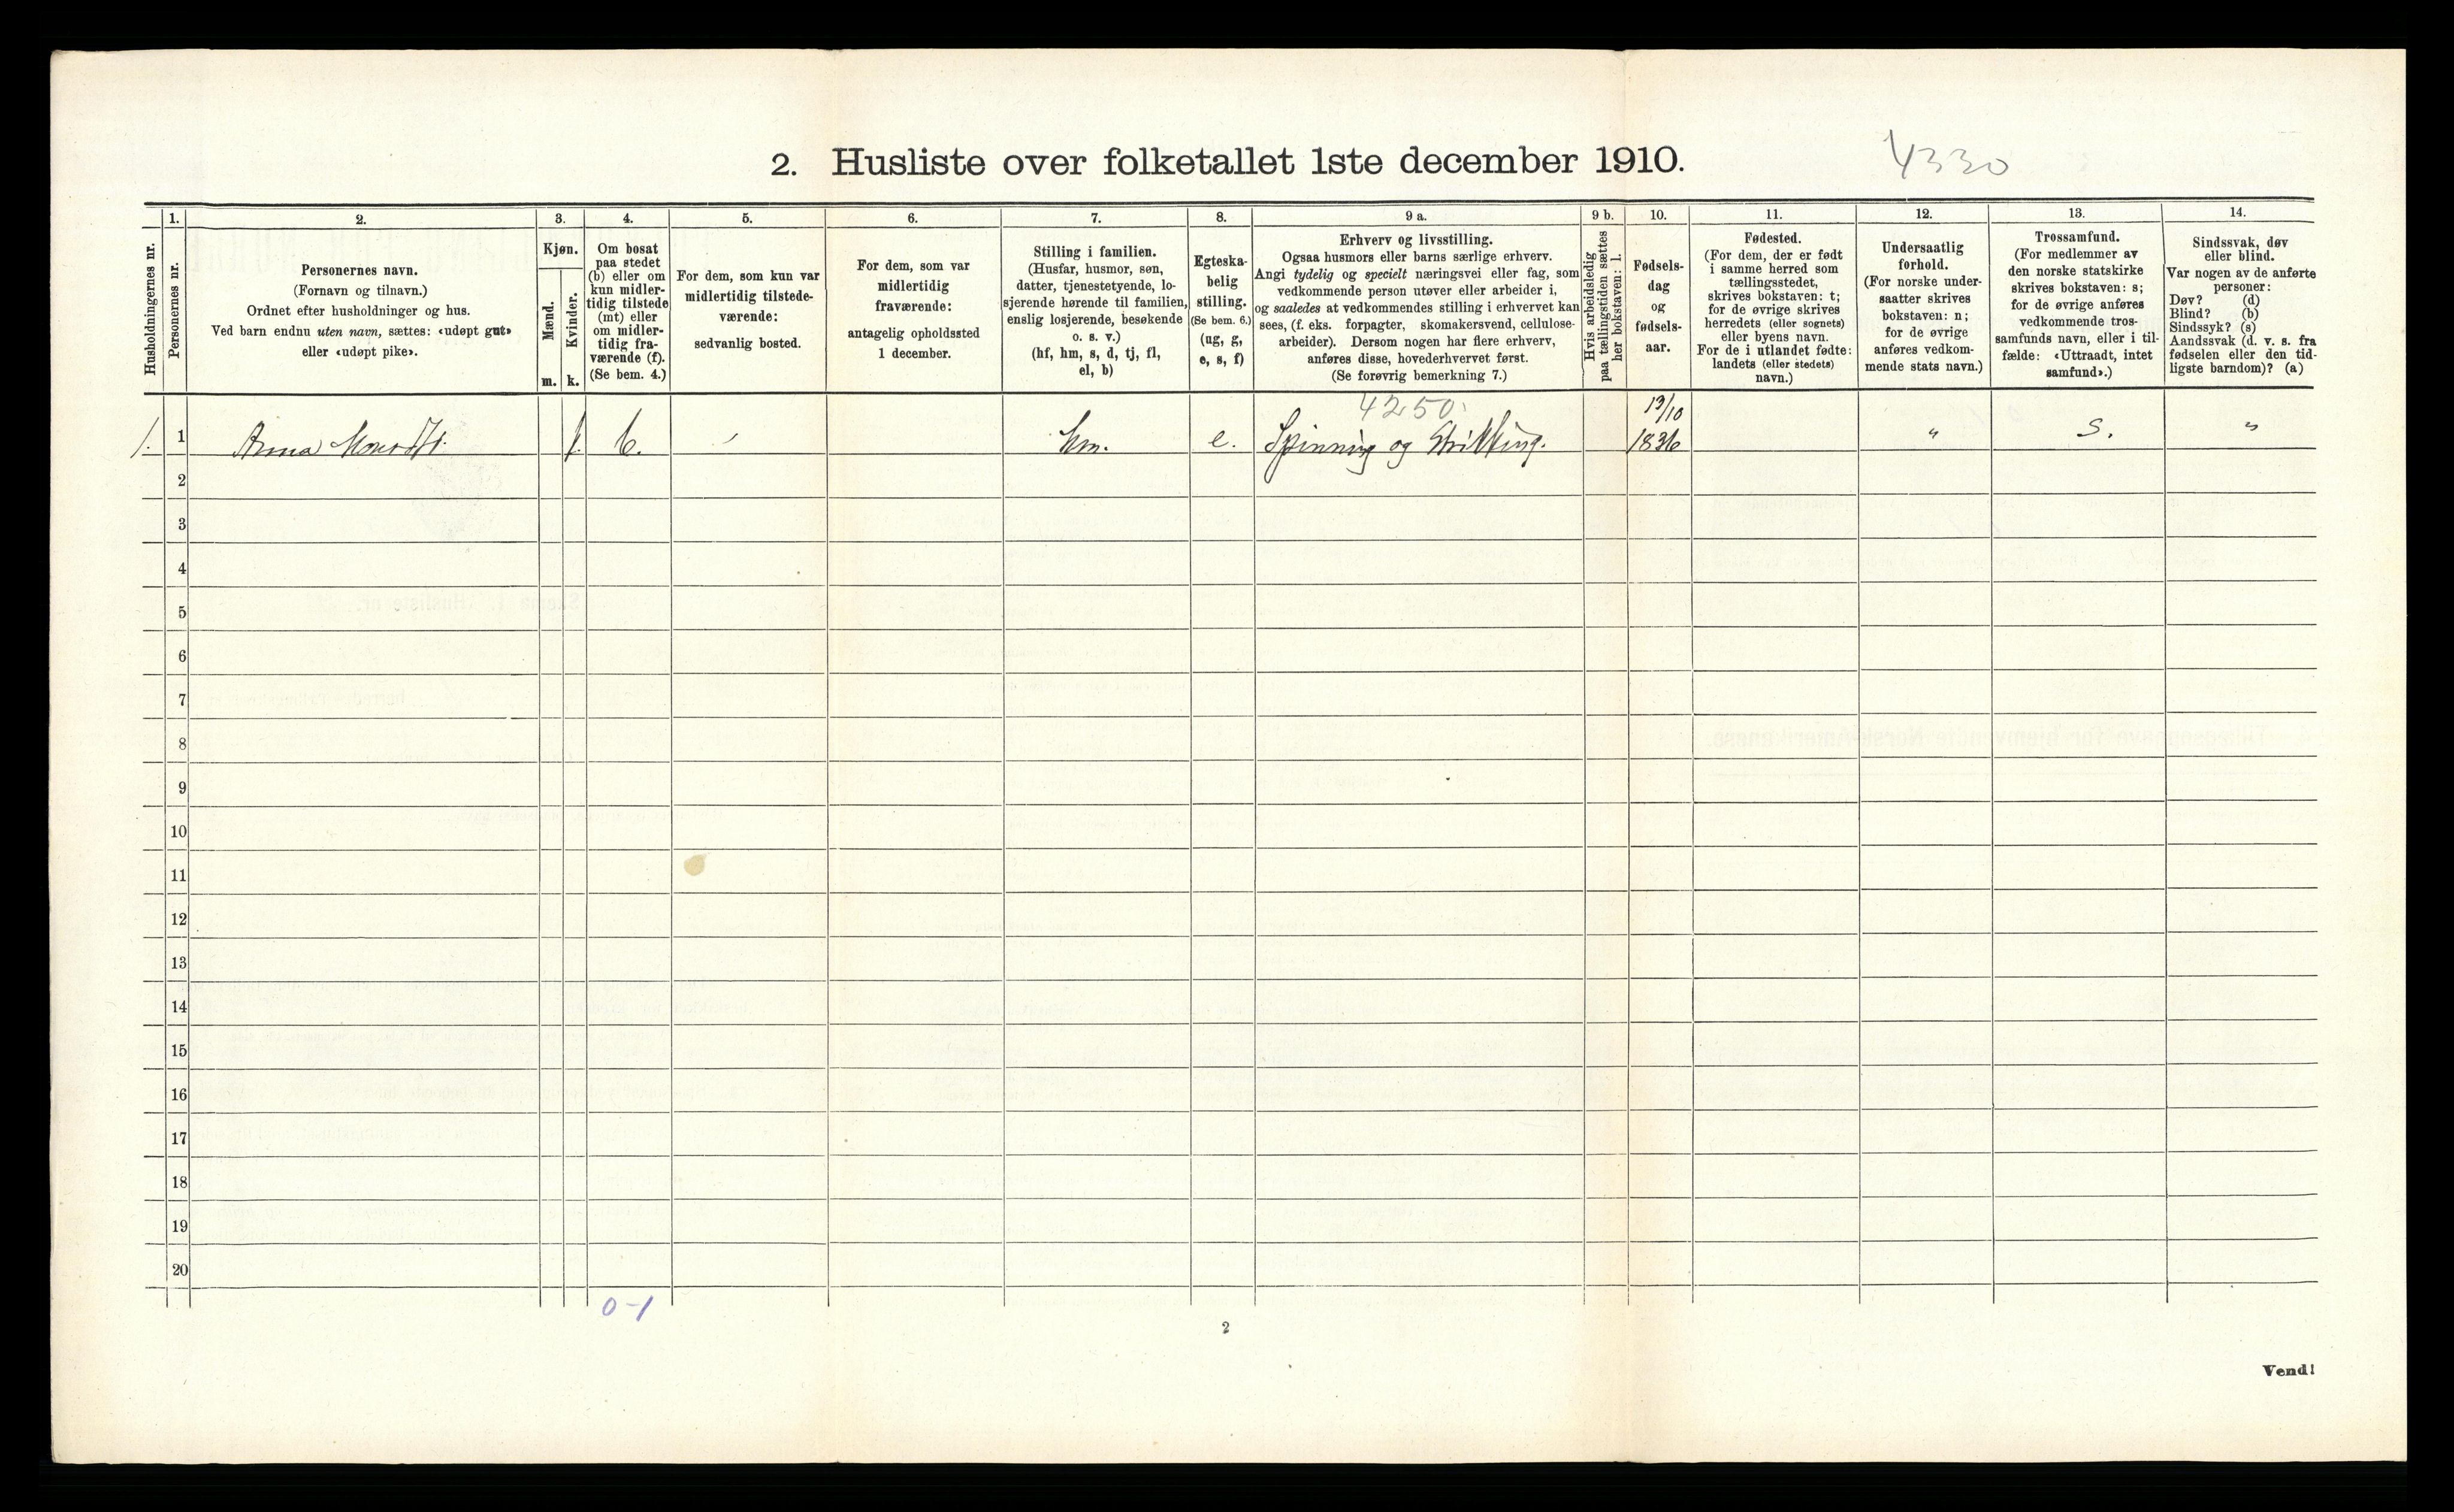 2. Husliste over folketallet 1ste december 1910.
4330
Husholdningernes nr.
1.
Personernes nr.
2.
Personernes navn.
(Fornavn og tilnavn.)
Ordnet efter husholdninger og hus.
Ved barn endnu uten navn, sættes: «udøpt gut»
eller «udøpt pike».
3.
Kjøn.
Mænd.
Kvinder.
m. k.
4.
Om bosat
paa stedet
(b) eller om
kun midler-
tidig tilstede
(mt) eller
om midler-
tidig fra-
værende (f).
(Se bem. 4.)
5.
For dem, som kun var
midlertidig tilstede-
værende:
sedvanlig bosted.
6.
For dem, som var
midlertidig
fraværende:
antagelig opholdssted
1 december.
7.
Stilling i familien.
(Husfar, husmor, søn,
datter, tjenestetyende, lo-
sjerende hørende til familien,
enslig losjerende, besøkende
o. s. v.)
(hf, hm, s, d, tj, fl,
el, b)
8.
Egteska-
belig
stilling.
(Se bem. 6.)
(ug, g,
e, s, f)
9 a.
Erhverv og livsstilling.
Ogsaa husmors eller barns særlige erhverv.
Angi tydelig og specielt næringsvei eller fag, som
vedkommende person utøver eller arbeider i,
og saaledes at vedkommendes stilling i erhvervet kan
sees, (f. eks. forpagter, skomakersvend, cellulose-
arbeider). Dersom nogen har flere erhverv,
anføres disse, hovederhvervet først.
(Se forøvrig bemerkning 7.)
9 b.
Hvis arbeidsledig
paa tællingstiden sættes
her bokstaven: l.
10.
Fødsels-
dag
og
fødsels-
aar.
11.
Fødested.
(For dem, der er født
i samme herred som
tællingsstedet,
skrives bokstaven: t;
for de øvrige skrives
herredets (eller sognets)
eller byens navn.
For de i utlandet fødte:
landets (eller stedets)
navn.)
12.
Undersaatlig
forhold.
(For norske under-
saatter skrives
bokstaven: n;
for de øvrige
anføres vedkom-
mende stats navn.)
13.
Trossamfund.
(For medlemmer av
den norske statskirke
skrives bokstaven: s;
for de øvrige anføres
vedkommende tros-
samfunds navn, eller i til-
fælde: «Uttraadt, intet
samfund».)
14.
Sindssvak, døv
eller blind.
Var nogen av de anførte
personer:
Døv? (d)
Blind? (b)
Sindssyk? (s)
Aandssvak (d. v. s. fra
fødselen eller den tid-
ligste barndom)? (a)
4250
19/10
1. 1 Anna b. hm. e. Spinning og Strikking. 1836 " s. "
2
3
4
5
6
7
8
9
10
11
12
13
14
15
16
17
18
19
20
0-1
2
Vend!